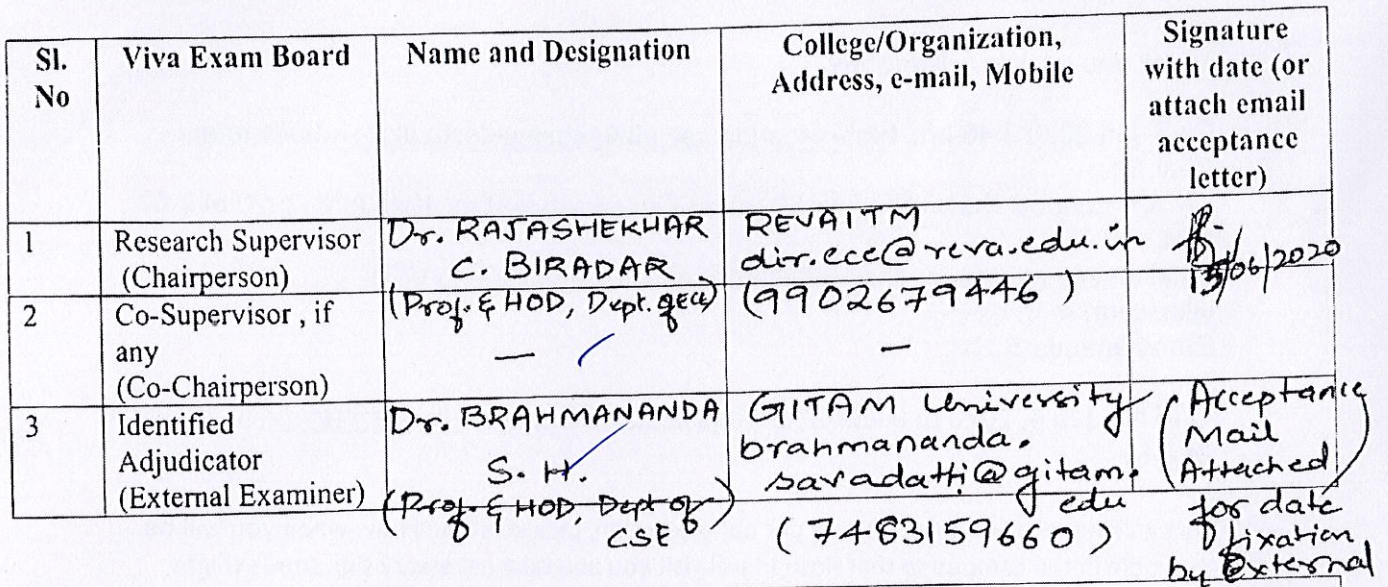 Sl. No
Viva Exam Board
Name and Designation
College/Organization,
Address, e-mail, Mobile
Signature
with date (or
attach email
acceptance
letter)
1
Research Supervisor
(Chairperson)
Dr. RAJASHEKHAR
C. BIRADAR
(Prof. & HOD, Dept. of ECE)
REVAITM
dir.ece@reva.edu.in
(9902679446)
/06/2020
2
Co-Supervisor , if
any
(Co-Chairperson)
—
—
3
Identified
Adjudicator
(External Examiner)
Dr. BRAHMANANDA
S. H.
(Prof. & HOD, Dept of
CSE)
GITAM University
brahmananda.
savadatti@gitam.
edu
(7483159660)
(Acceptance
Mail
Attached)
for date
fixation
by External